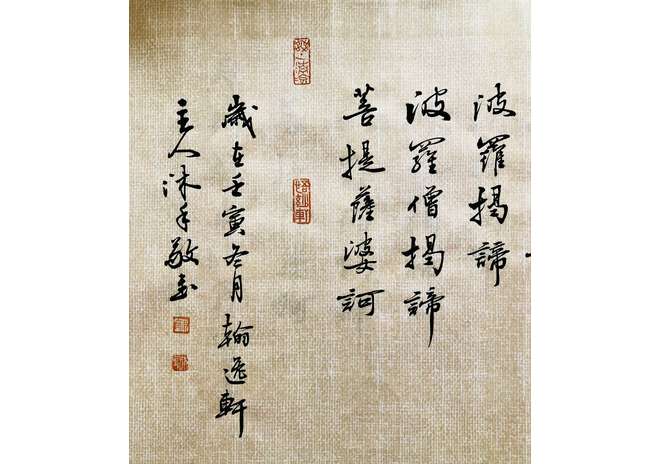 波羅揭諦
波羅僧揭諦
菩提薩婆訶
歲在壬寅冬月翰逸軒
主人沐手敬書